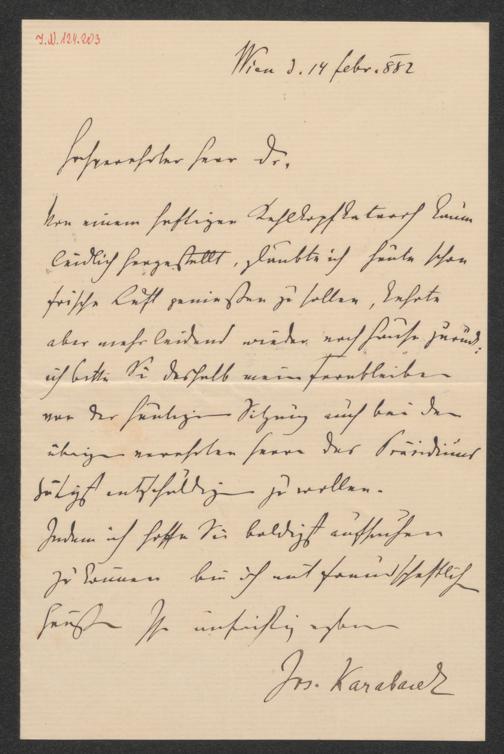 I.N.124.203
Wien d. 14 febr. 882
Hochverehrter Herr Dr.
Von einem heftigen Kehlkopfkatarrh kaum
leidlich hergestellt, glaubte ich heute schon
frische Luft genießen zu sollen, kehrte
aber mehr leidend wieder nach Hause zurück;
ich bitte Sie deshalb mein Fernbleiben
von der heutigen Sitzung auch bei den
übrigen verehrten Herren des Präsidiums
gütigst entschuldigen zu wollen.
Indem ich hoffe Sie baldigst aufsuchen
zu können bin ich mit freundschaftlich
Grüßen Ihr aufrichtig ergebener
Jos. Karabacek